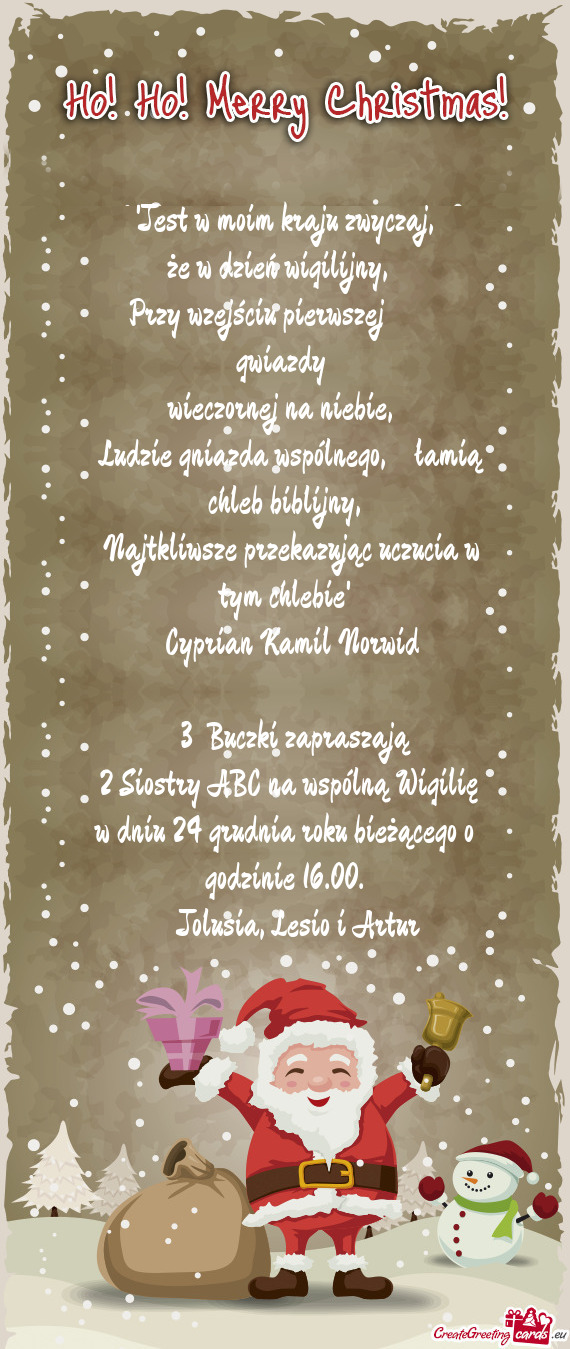 Ho! Ho! Merry Christmas!
"Jest w moim kraju zwyczaj,
że w dzień wigilijny,
Przy wzejściu pierwszej
gwiazdy
wieczornej na niebie,
Ludzie gniazda wspólnego, łamią
chleb biblijny,
Najtkliwsze przekazując uczucia w
tym chlebie"
Cyprian Kamil Norwid
3 Buczki zapraszają
2 Siostry ABC na wspólną Wigilię
w dniu 24 grudnia roku bieżącego o
godzinie 16.00.
Jolusia, Lesio i Artur
CreateGreeting cards .eu